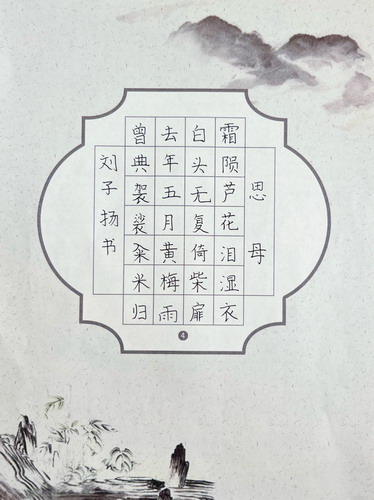 思母
霜陨芦花泪湿衣
白头无复倚柴扉
去年五月黄梅雨
曾典袈裟籴米归
刘子扬书
4